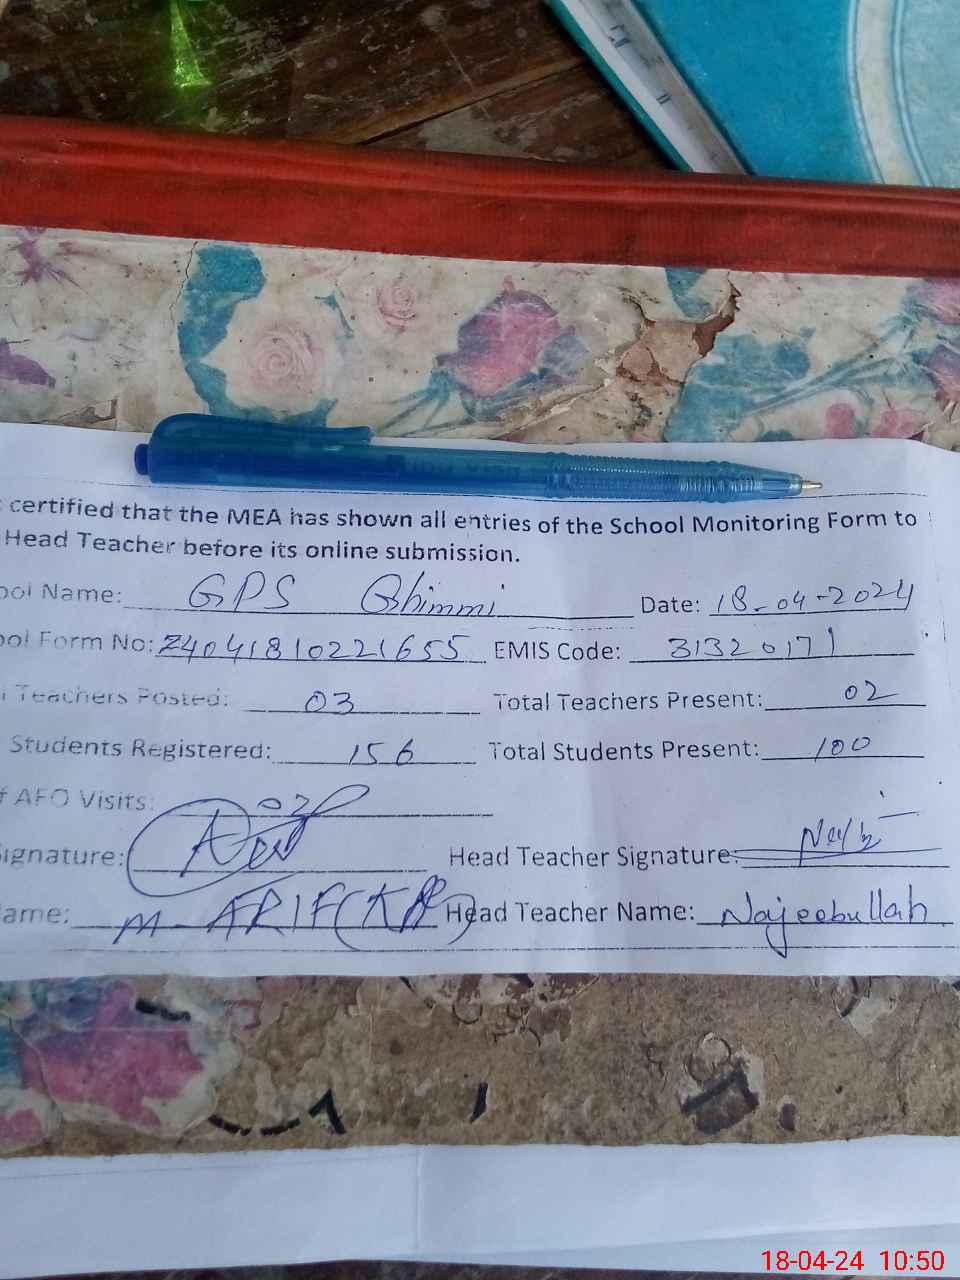 certified that the MEA has shown all entries of the School Monitoring Form to
Head Teacher before its online submission.
ool Name: GPS Ghimmi Date: 18-04-2024
ool Form No: Z4041810221655 EMIS Code: 31320171
Teachers Posted: 03 Total Teachers Present: 02
Students Registered: 156 Total Students Present: 100
AFO Visits: 03
ignature: Head Teacher Signature:
ame: M-ARIF Head Teacher Name: Najeebullah
18-04-24 10:50